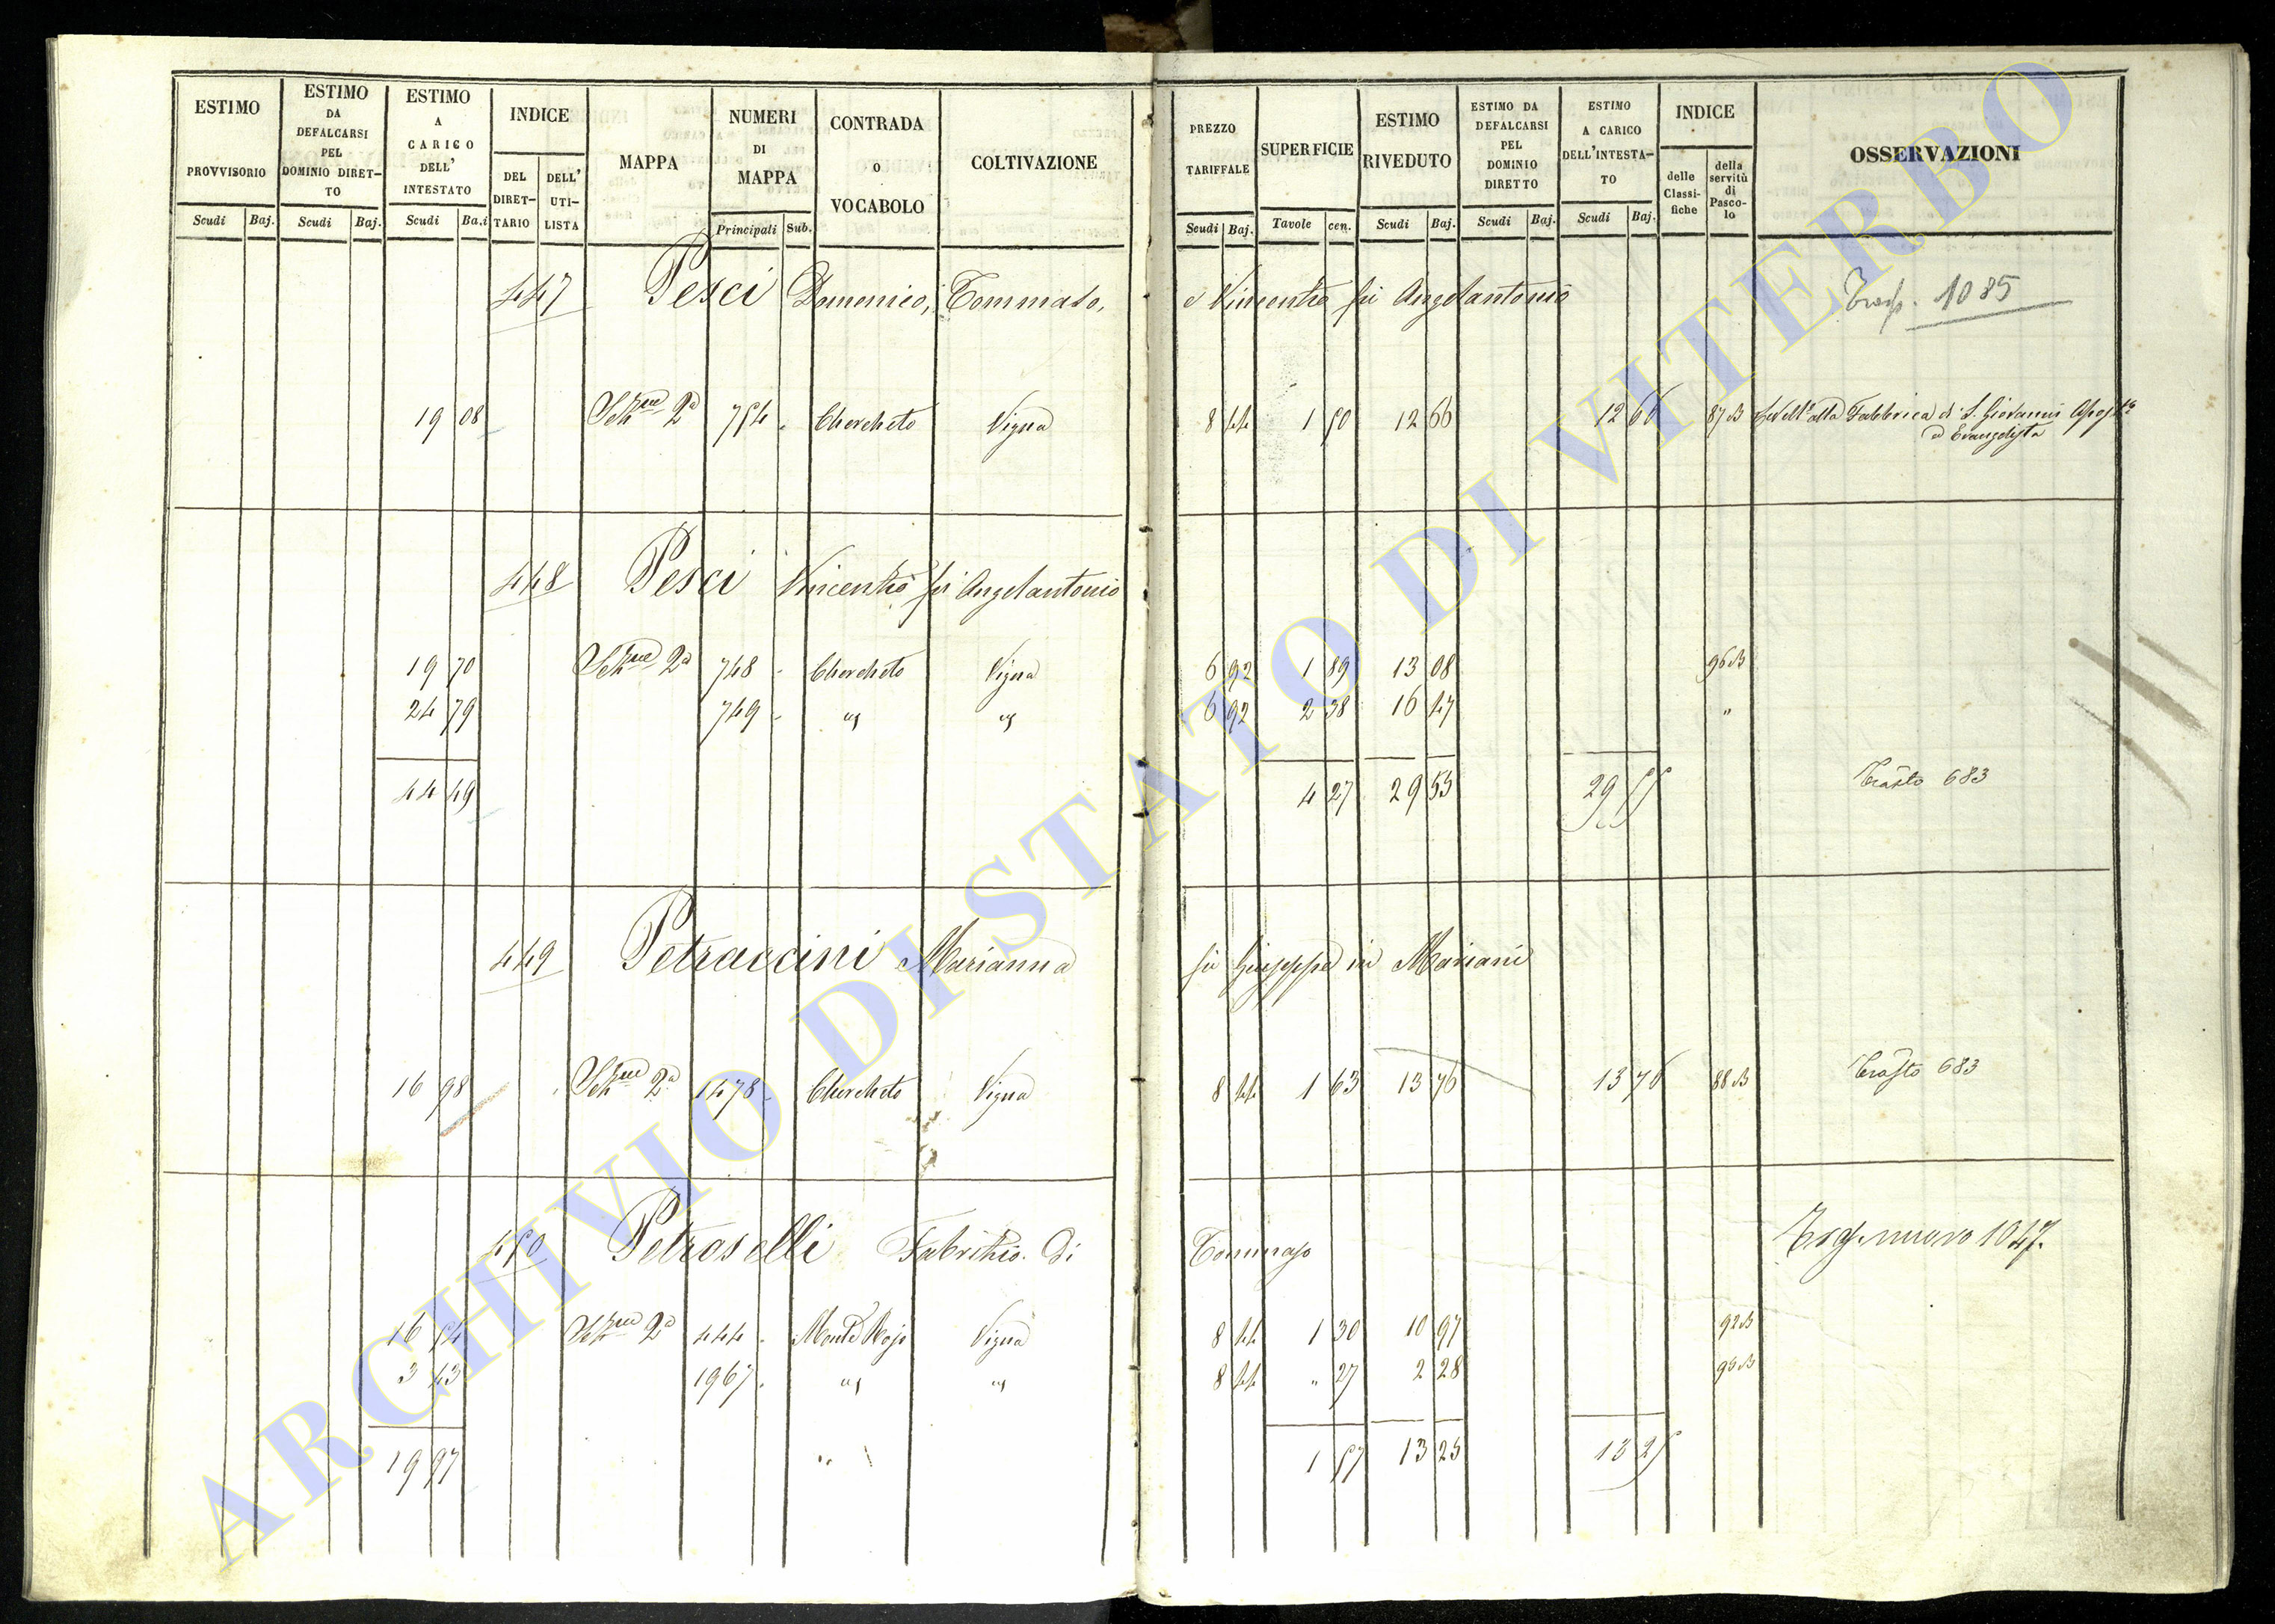 ESTIMO PROVVISORIO Scudi Baj.
ESTIMO DA DEFALCARSI PEL DOMINIO DIRET-TO Scudi Baj.
ESTIMO A CARICO DELL' INTESTATO Scudi Ba.i
INDICE DEL DIRET-TARIO DELL' UTI-LISTA
MAPPA
NUMERI DI MAPPA Principali Sub.
CONTRADA O VOCABOLO
COLTIVAZIONE
PREZZO TARIFFALE Scudi Baj.
SUPERFICIE Tavole cen.
ESTIMO RIVEDUTO Scudi Baj.
ESTIMO DA DEFALCARSI PEL DOMINIO DIRETTO Scudi Baj.
ESTIMO A CARICO DELL'INTESTA-TO Scudi Baj.
INDICE delle Classi-fiche della servitù di Pasco-lo
OSSERVAZIONI
447 Pesci Domenico, Tommaso, e Vincentio fù Angelantonio 1085
19 08 2a 754 Chercheto Vigna 8 44 1 50 12 66 12 66 87 B alla Fabbrica di S. Giovanni
ed Evangelista
448 Pesci Vincentio fù Angelantonio
19 70 2a 748 Chercheto Vigna 6 92 1 89 13 08 96 B
24 79 749 " " 6 92 2 38 16 47 "
44 49 4 27 29 55 29 55 683
449 Petraccini Marianna fù Giuseppe in Mariani
16 98 2a 1478 Chercheto Vigna 8 44 1 63 13 76 13 76 88 B 683
450 Petroselli Fabritio Di Tommaso nuovo 1047
16 54 2a 444 Monte Vigna 8 44 1 30 10 97 92 B
3 43 1967 " " 8 44 " 27 2 28 93 B
19 97 1 57 13 25 13 25
ARCHIVIO DI STATO DI VITERBO